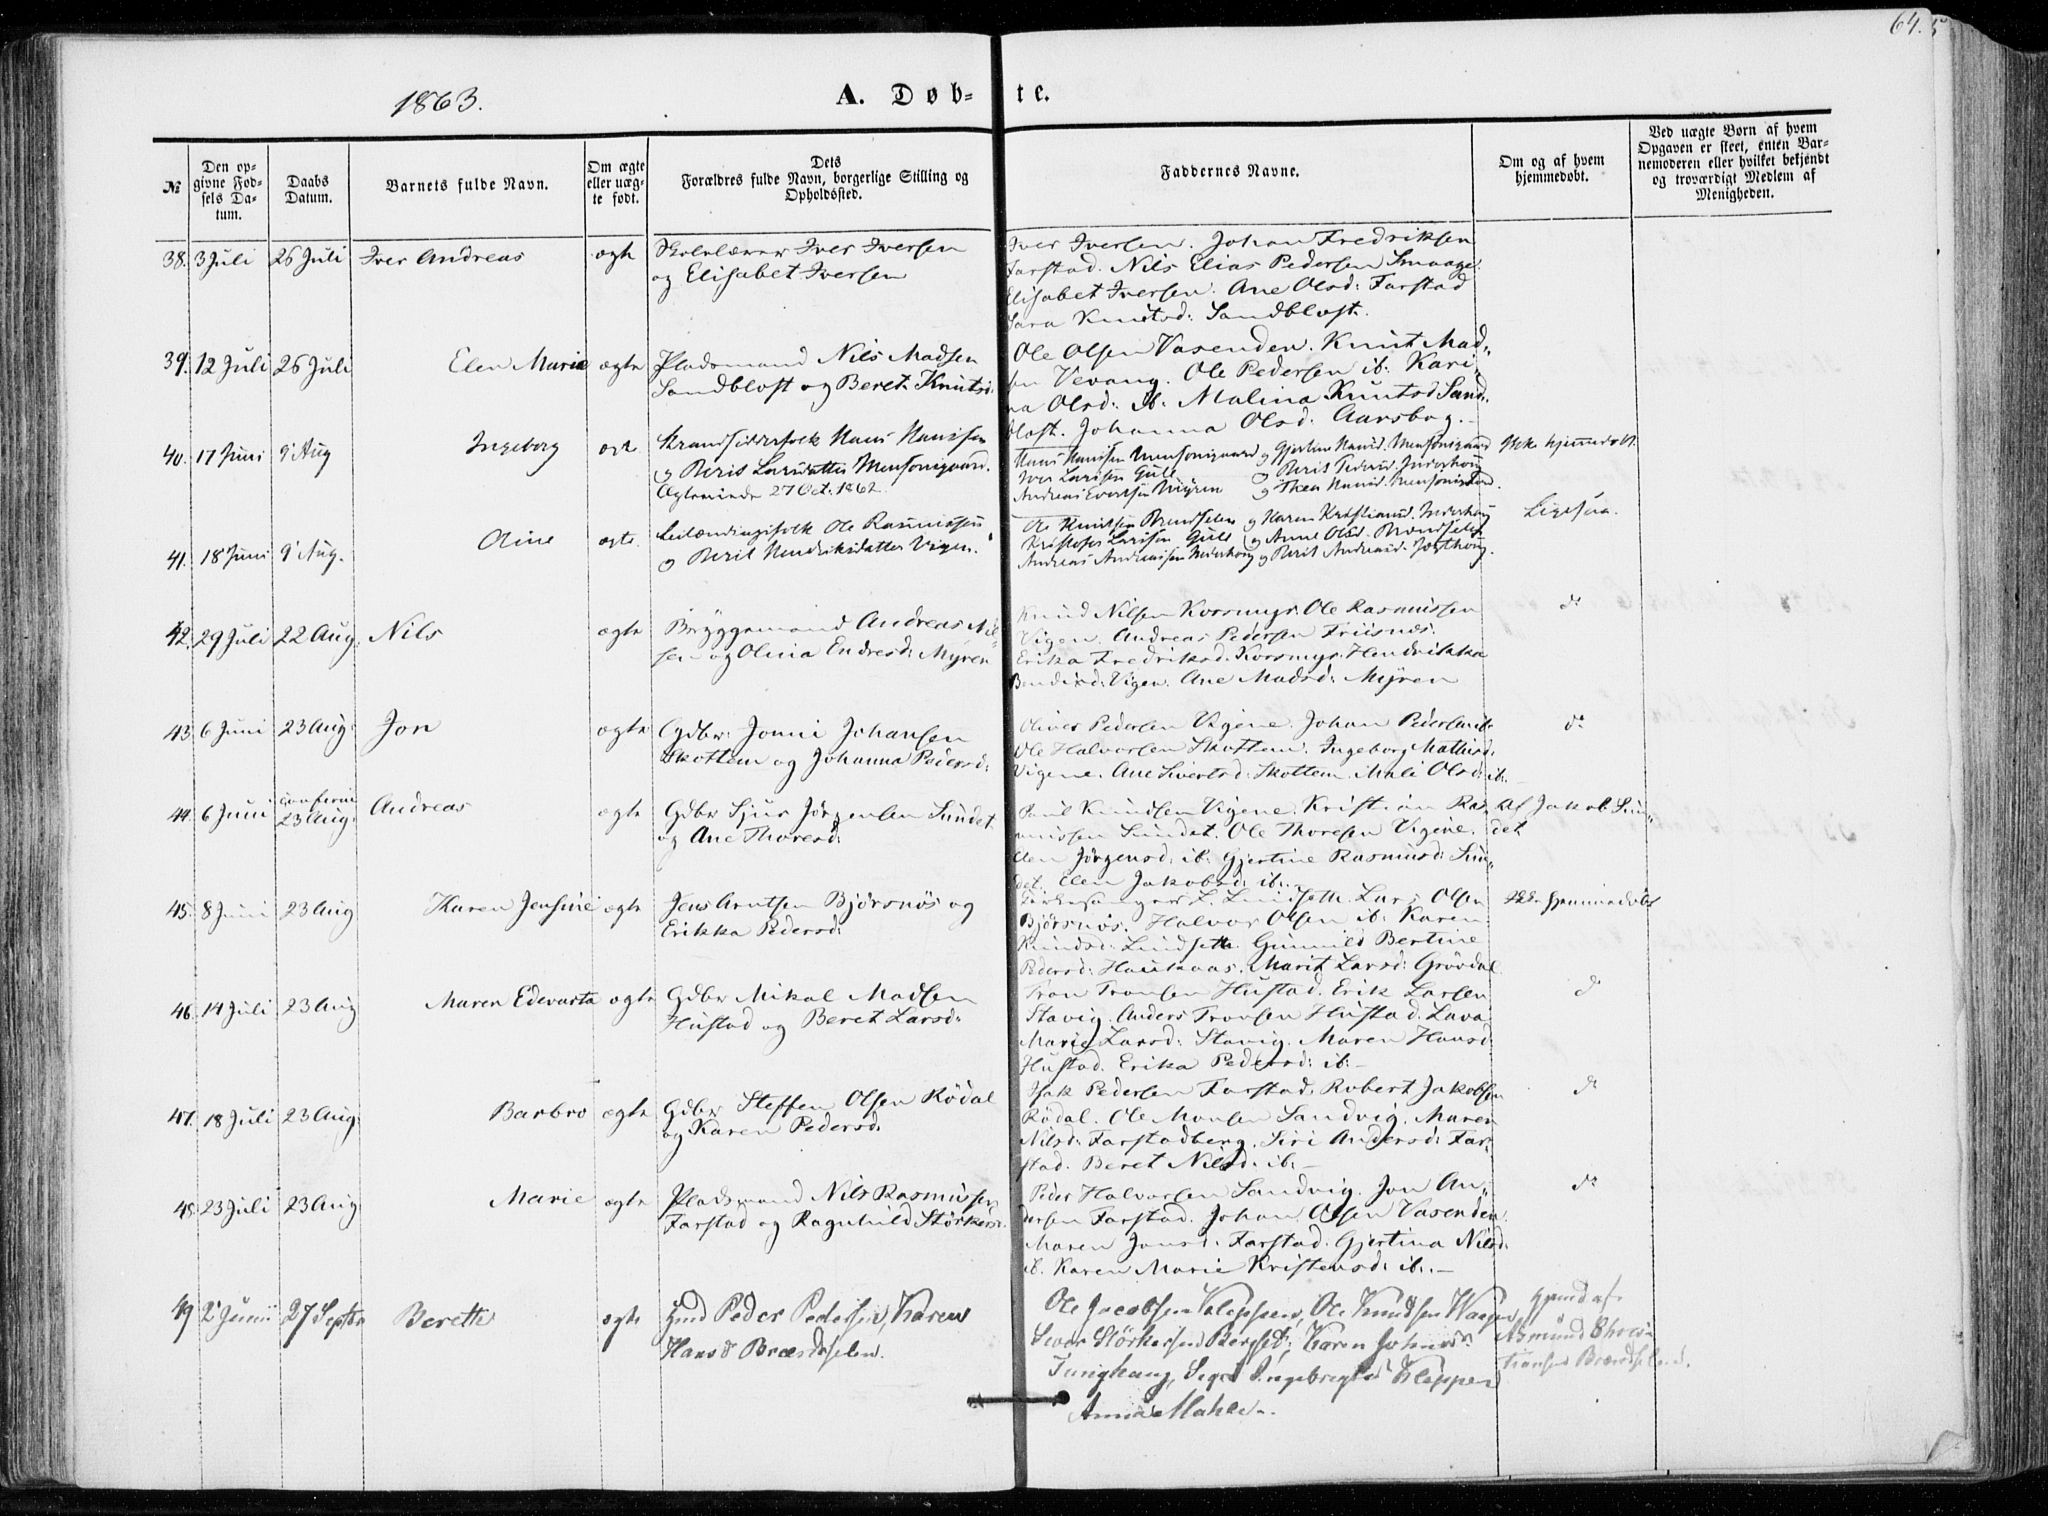 64.
1863.
A. Døb- te.
№
Den op-
givne Fød-
sels Da-
tum.
Daabs
Datum.
Barnets fulde Navn.
Om ægte
eller uæg-
te født.
Dets
Forældres fulde Navn, borgerlige Stilling og
Opholdssted.
Faddernes Navne.
Om og af hvem
hjemmedøbt.
Ved uægte Børn af hvem
Opgaven er skeet, enten Bar-
nemoderen eller hvilket bekjendt
og troværdigt Medlem af
Menigheden.
38. 3 Juli 26 Juli Iver Andreas ægte
Skolelærer Iver Iversen
og Elisabet Iversen
Iver Iversen. Johan Fredriksen
Farstad. Nils Elias Pedersen Smaage
Elisabet Iversen. Ane Olsd: Farstad
Sara Knutsd: Sandblost.
39. 12 Juli 26 Juli Elen Marie ægte
Pladsmand Nils Madsen
Sandblost og Beret Knutsd:
Ole Olsen Vasenden. Knut Mad„
sen Vevang. Ole Pedersen ib: Kari„
na Olsd: ib: Malina Knutsd Sand„
blost. Johanna Olsd: Aarsbog.
40. 17 Juni 9 Aug Ingeborg ægte
Strandsidderfolk Hans Hanssen
og Berit Larsdatter Mensonsgaard.
Ægteviede 27 Oct. 1862
Hans Hanssen Mensonsgaard og Gjertine Hansd. Mensonsgaard
Iver Larssen Gule og Berit Pedersd. Inderhoug
Andreas Evertsen Myren og Thea Hansd.
Ikke hjemmedøbt.
41. 18 Juni 9 Aug. Oline ægte.
Leilændingsfolk Ole Rasmussen
og Berit Hendriksdatter Vigen.
Ole Knutsen Brendselen og Karen Kristiansd. Inderhoug
Kristofer Larssen Gule og Anne Olsd. Brendselen
Andreas Andreassen Inderhoug og Berit Andreasd.
Ligesaa.
42. 29 Juli 22 Aug. Nils ægte
Bryggemand Andreas Nil„
sen og Olina Endresd: Myren
Knud Nilsen Korsmyr. Ole Rasmussen
Vigen. Andreas Pedersen Friisnæs.
Erika Fredriksd: Korsmyr. Hendrikka
Bendixd: Vigen. Ane Madsd: Myren
do
43 6 Juni 23 Aug: Jon ægte
Gdbr: Jonni Johansen
Skottem og Johanna Pedersd:
Oliver Pedersen Vigene. Johan Pedersen ib:
Ole Halvorsen Skottem. Ingeborg Mathisd:
Vigene. Ane Sivertsd: Skottem. Mali Olsd: ib:
do
44. 6 Juni 23 Aug: Andreas ægte
Gdbr Sjur Jørgensen Sundet
og Ane Thoresd:
Paul Knudsen Vigene. Kristian Ras„
mussen Sundet. Ole Thoresen Vigene.
Elen Jørgensd: ib: Gjertine Rasmusd: Sun„
det. Elen Jakobsd: ib:
Af Jakob Sun„
det
45. 8 Juni 23 Aug Karen Jensine ægte
Jens Arntsen Bjørsnøs og
Erikka Pedersd:
Kirkesanger L. Lindseth. Lars Olsen
Bjørsnøs. Halvor Olsen ib: Karen
Knudsd: Lindseth. Gunnild Bertine
Pedersd: Haukaas. Marit Larsd: Grövdal
Ikke hjemmedøbt
46. 14 Juli 23 Aug Maren Edevarta ægte
Gdbr Mikal Madsen
Hustad og Beret Larsd:
Tron Tronsen Hustad. Erik Larsen
Stavig. Anders Tronsen Hustad. Lava
Marie Larsd: Stavig. Maren Hansd
Hustad. Erika Pedersd: ib:
do
47. 18 Juli 23 Aug: Barbro ægte
Gdbr Steffen Olsen Rödal
og Karen Pedersd:
Isak Pedersen Farstad. Robert Jakobsen
Rödal. Ole Monsen Sandvig. Maren
Nilsd: Farstadberg. Siri Andersd: Far„
stad. Beret Nilsd: ib:
do
48. 23 Juli 23 Aug: Marie ægte
Pladsmand Nils Rasmussen
Farstad og Ragnhild Störkersd:
Peder Halvorsen Sandvig. Jon An„
dersen Farstad. Johan Olsen Vasenden.
Maren Jonsd: Farstad. Gjertina Nilsd:
ib. Karen Marie Kristensd: ib:
do
49 2 Juni 27 Septbr Berette ægte
Gmd Peder Pedersen, Karen
Hansd Brændselen.
Ole Jacobsen Kleppen, Ole Knudsen Haagen
Iver Störkersen Bergset, Karen Johnsd.
Tunghaug, Ingebregtsd Kleppen
Anna Malie.
hjemd af
Asmund
Brændselen.